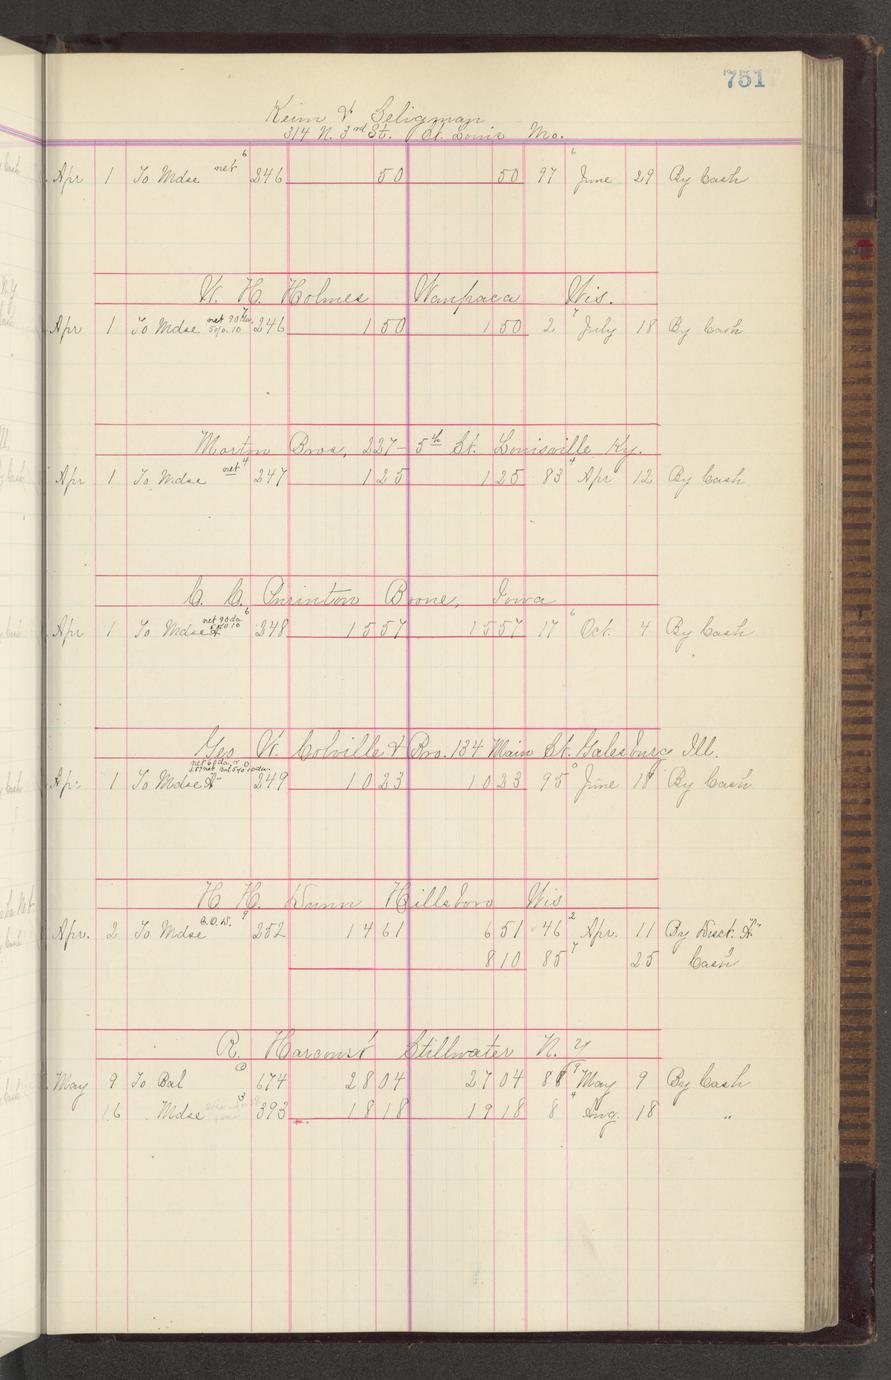 751
Keim & Seligman
314 N. 3rd St. St. Louis Mo.
Apr 1 To Mdse net 6 246 50 50 97 6 June 29 By Cash
W. H. Holmes Waupaca Wis.
Apr 1 To Mdse net 90 da. 5% 10 7 246 1 50 1 50 2 7 July 18 By Cash
Morton Bros, 227-5th St. Louisville Ky.
Apr 1 To Mdse net 4 247 1 25 1 25 83 4 Apr 12 By Cash
C. C. Purinton Boone, Iowa
Apr 1 To Mdse net 90 da 6 248 15 57 15 57 17 6 Oct. 4 By Cash
Geo W. Colville & Bro. 134 Main St. Galesburg Ill.
Apr 1 To Mdse net 60 da. 249 10 23 10 23 95 June 18 By Cash
H H Dunn Hillsboro Wis
Apr. 2 To Mdse 9 252 14 61 6 51 46 2 Apr. 11 By Disct. "A"
8 10 85 7 25 Cash
R. Harcourt Stillwater N. Y
May 9 To Bal 674 28 04 27 04 88 9 May 9 By Cash
16 Mdse 3 393 18 18 19 18 8 4 Aug. 18 "